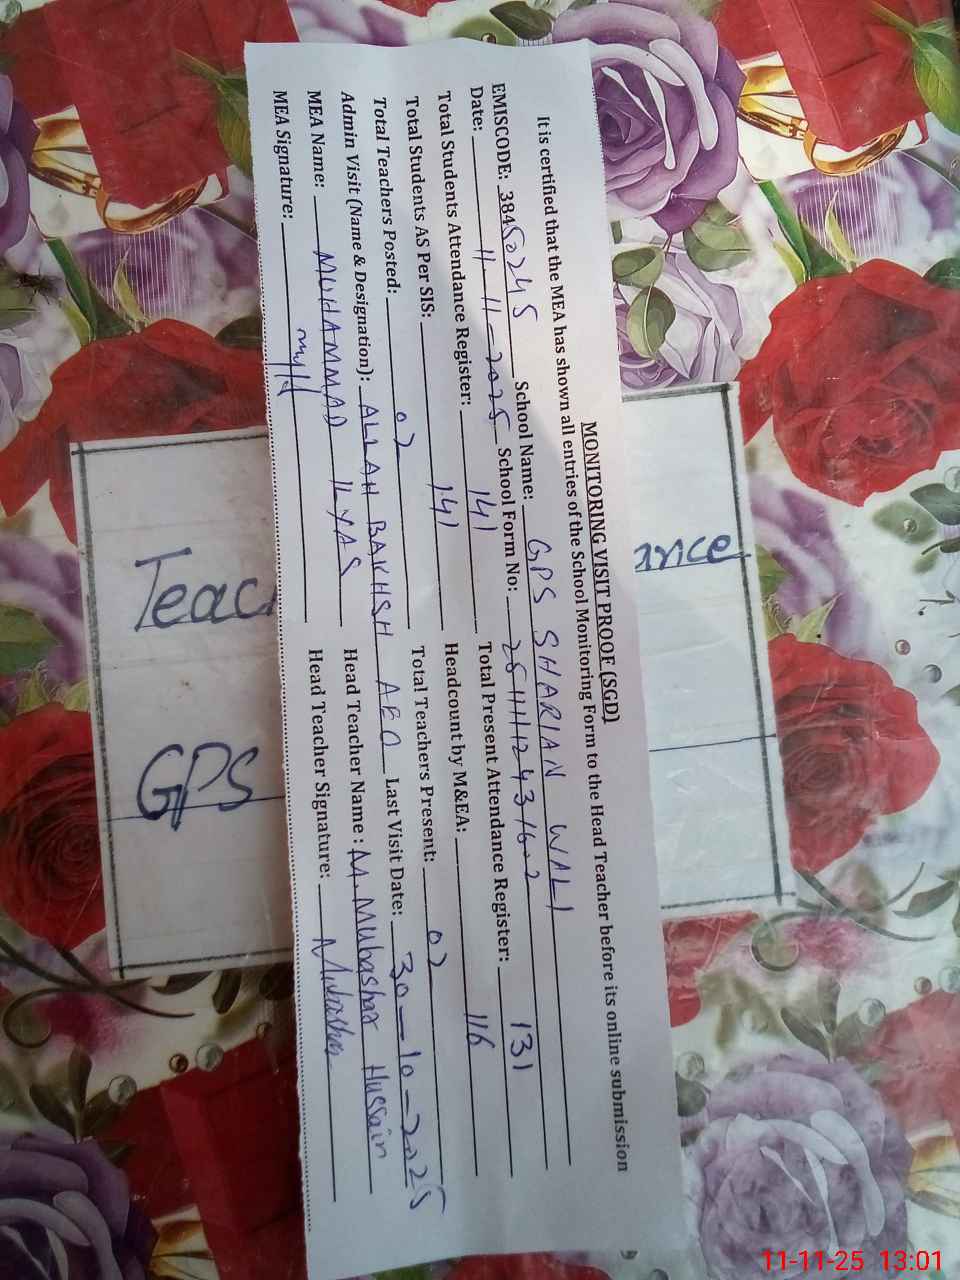 MONITORING VISIT PROOF (SGD)
It is certified that the MEA has shown all entries of the School Monitoring Form to the Head Teacher before its online submission
EMISCODE: 38450245 School Name: GPS SHARIAN WALI
Date: 11-11-2025 School Form No: 2511112431602
Total Students Attendance Register: 141 Total Present Attendance Register: 131
Total Students AS Per SIS: 141 Headcount by M&EA: 116
Total Teachers Posted: 02 Total Teachers Present: 02
Admin Visit (Name & Designation): ALLAH BAKHSH AEO Last Visit Date: 30-10-2025
MEA Name: MUHAMMAD ILYAS Head Teacher Name : M. Mubashar Hussain
MEA Signature: Head Teacher Signature: Mubashar
Teac
ance
GPS
11-11-25 13:01